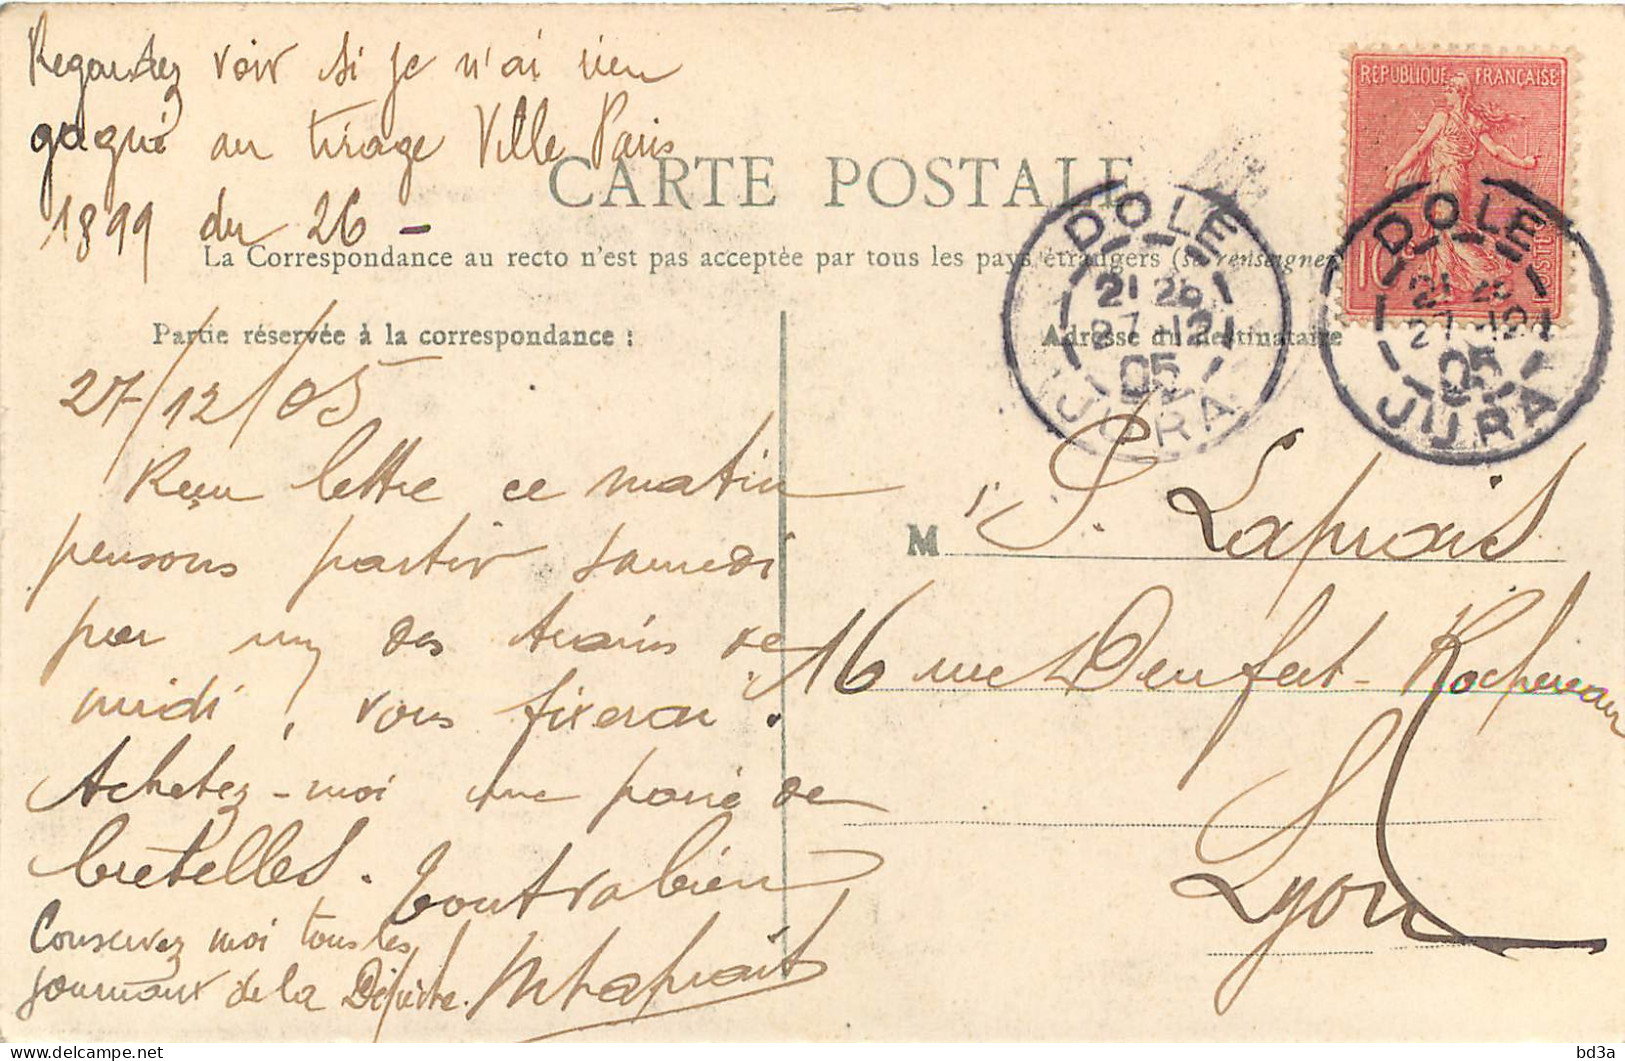 Regardez voir si je n'ai rien
gagné au tirage Ville Paris
1899 du 26 -
CARTE POSTALE
La Correspondance au recto n'est pas acceptée par tous les pays étrangers (se renseigner
RÉPUBLIQUE FRANÇAISE
10c
POSTES
DOLE
21 25
27 -12
05
JURA
DOLE
21 25
27 -12
05
JURA
Partie réservée à la correspondance :
27/12/05
Reçu lettre ce matin
pensons partir samedi
par un des trains de
midi, vous fixerai.
Achetez-moi une paire de
bretelles. Tout va bien
Conservez moi tous les
journaux de la Dépêche.
Adresse du destinataire
M
16 rue Denfert-Rochereau
Lyon
bd3a